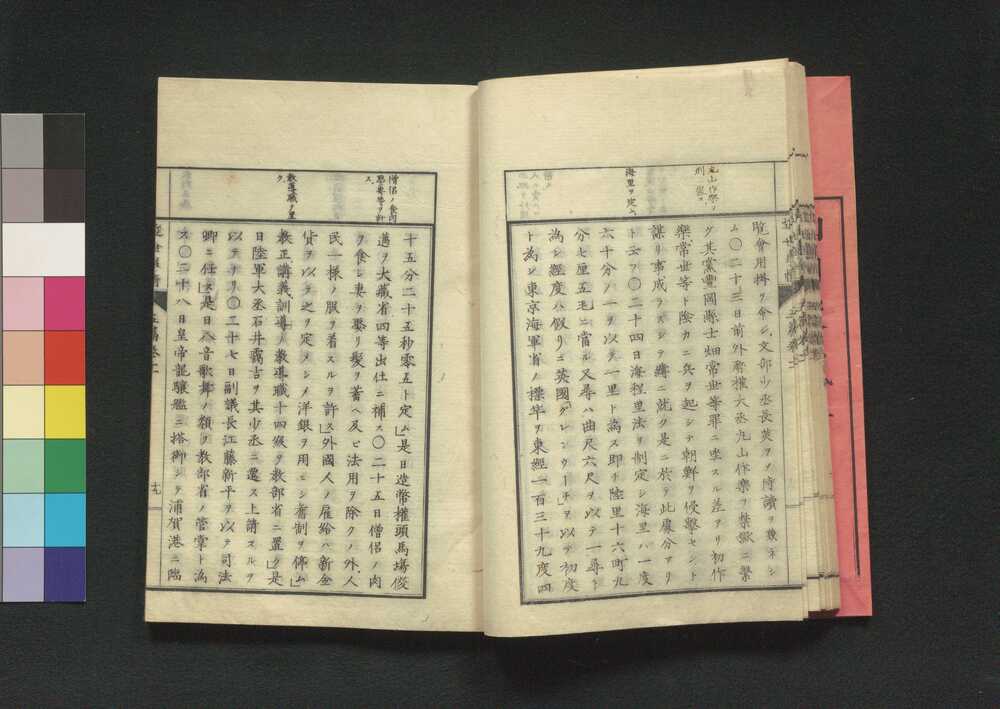 丸山作樂ノ
刑罰
海里ヲ定ム
覽會用掛ヲ命シ文部少丞長英ヲノ侍讀ヲ兼ネシ
ム〇二十三日前外務權大丞丸山作樂ヲ禁獄ニ繫
グ其黨豐岡縣士畑常世等罪ニ坐スル差アリ初作
樂常世等ト陰カニ兵ヲ起シテ朝鮮ヲ侵擊セント
謀リ事成ラズシテ縛ニ就ク是ニ於テ此處分アリ
ト云フ〇二十四日海程里法ヲ制定シ海里ハ一度
六十分ノ一ヲ以テ一里ト爲ス即チ陸里十六町九
分七厘五毛ニ當ル又尋ハ曲尺六尺ヲ以テ一尋ト
爲シ經度ハ假リニ英國「グレンウーチ」ヲ以テ初度
ト爲シ東京海軍省ノ標竿ヲ東經一百三十九度四
僧侶ノ食肉
娶妻等ヲ許
ス
教導職ヲ置
ク
十五分二十五秒零五ト定ム」是日造幣權頭馬場俊
邁ヲ大藏省四等出仕ニ補ス〇二十五日僧侶ノ肉
ヲ食シ妻ヲ娶リ髮ヲ蓄ヘ及ビ法用ヲ除クノ外、人
民一様ノ服ヲ着スルヲ許ス」外國人ノ雇給ハ新金
貨ヲ以テ之ヲ定メシメ洋銀ヲ用ヒシ舊制ヲ停ム」
教正講義訓導ノ教導職十四級ヲ教部省ニ置ク」是
日陸軍大丞石井靄吉ヲ其少丞ニ遷ス上請スルヲ
以テナリ〇二十七日副議長江藤新平ヲ以テ司法
卿ニ任ス」是日八音歌舞ノ類ヲ教部省ノ管掌ト爲
ス〇二十八日皇帝龍驤艦ニ搭御シテ浦賀港ニ臨
十九